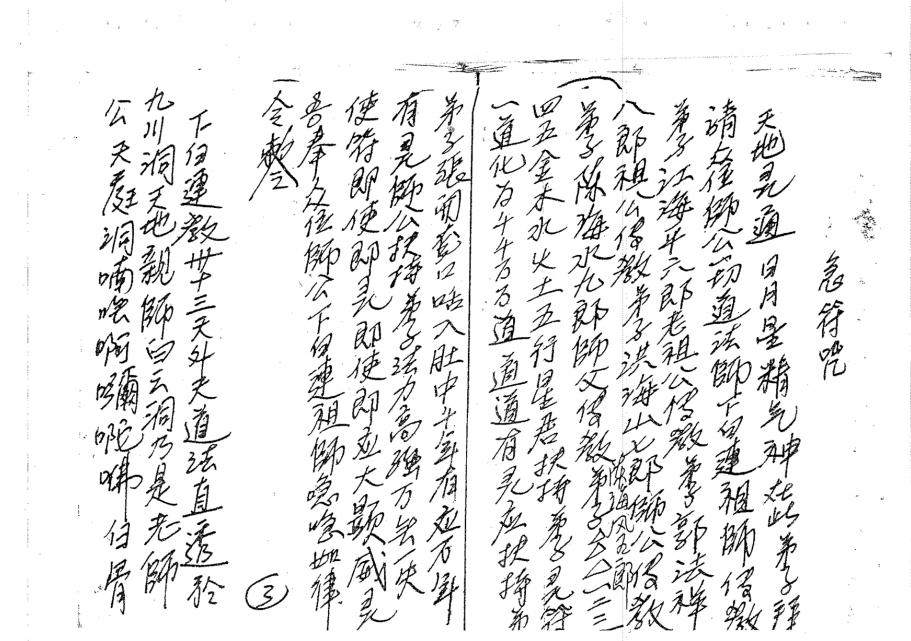 急符咒
天地灵通 日月星精气神在此弟子拜
请众位师公一切道法师下白莲祖师传教
弟子江海千六郎老祖公传教弟子郭法祥
八郎祖公传教弟子洪海山七郎师公传教
陈海风五郎
弟子陈海水九郎师父传教弟子厶厶一二三
四五金木水火土五行星君扶持弟子灵符
一道化为千千万万道道道有灵应扶持弟
弟子張開金口咭入肚中千年有应万年
有灵師公扶持弟子法力高强万无一失
使符即使即灵即使即应大顯威灵
吾奉众位師公下白連祖師急急如律
令敕令
下白連教卅十三天外夫道法直透於
九川洞天地親師白云洞乃是老師
公天庭洞喃嗞啊彌陀佛白骨
3